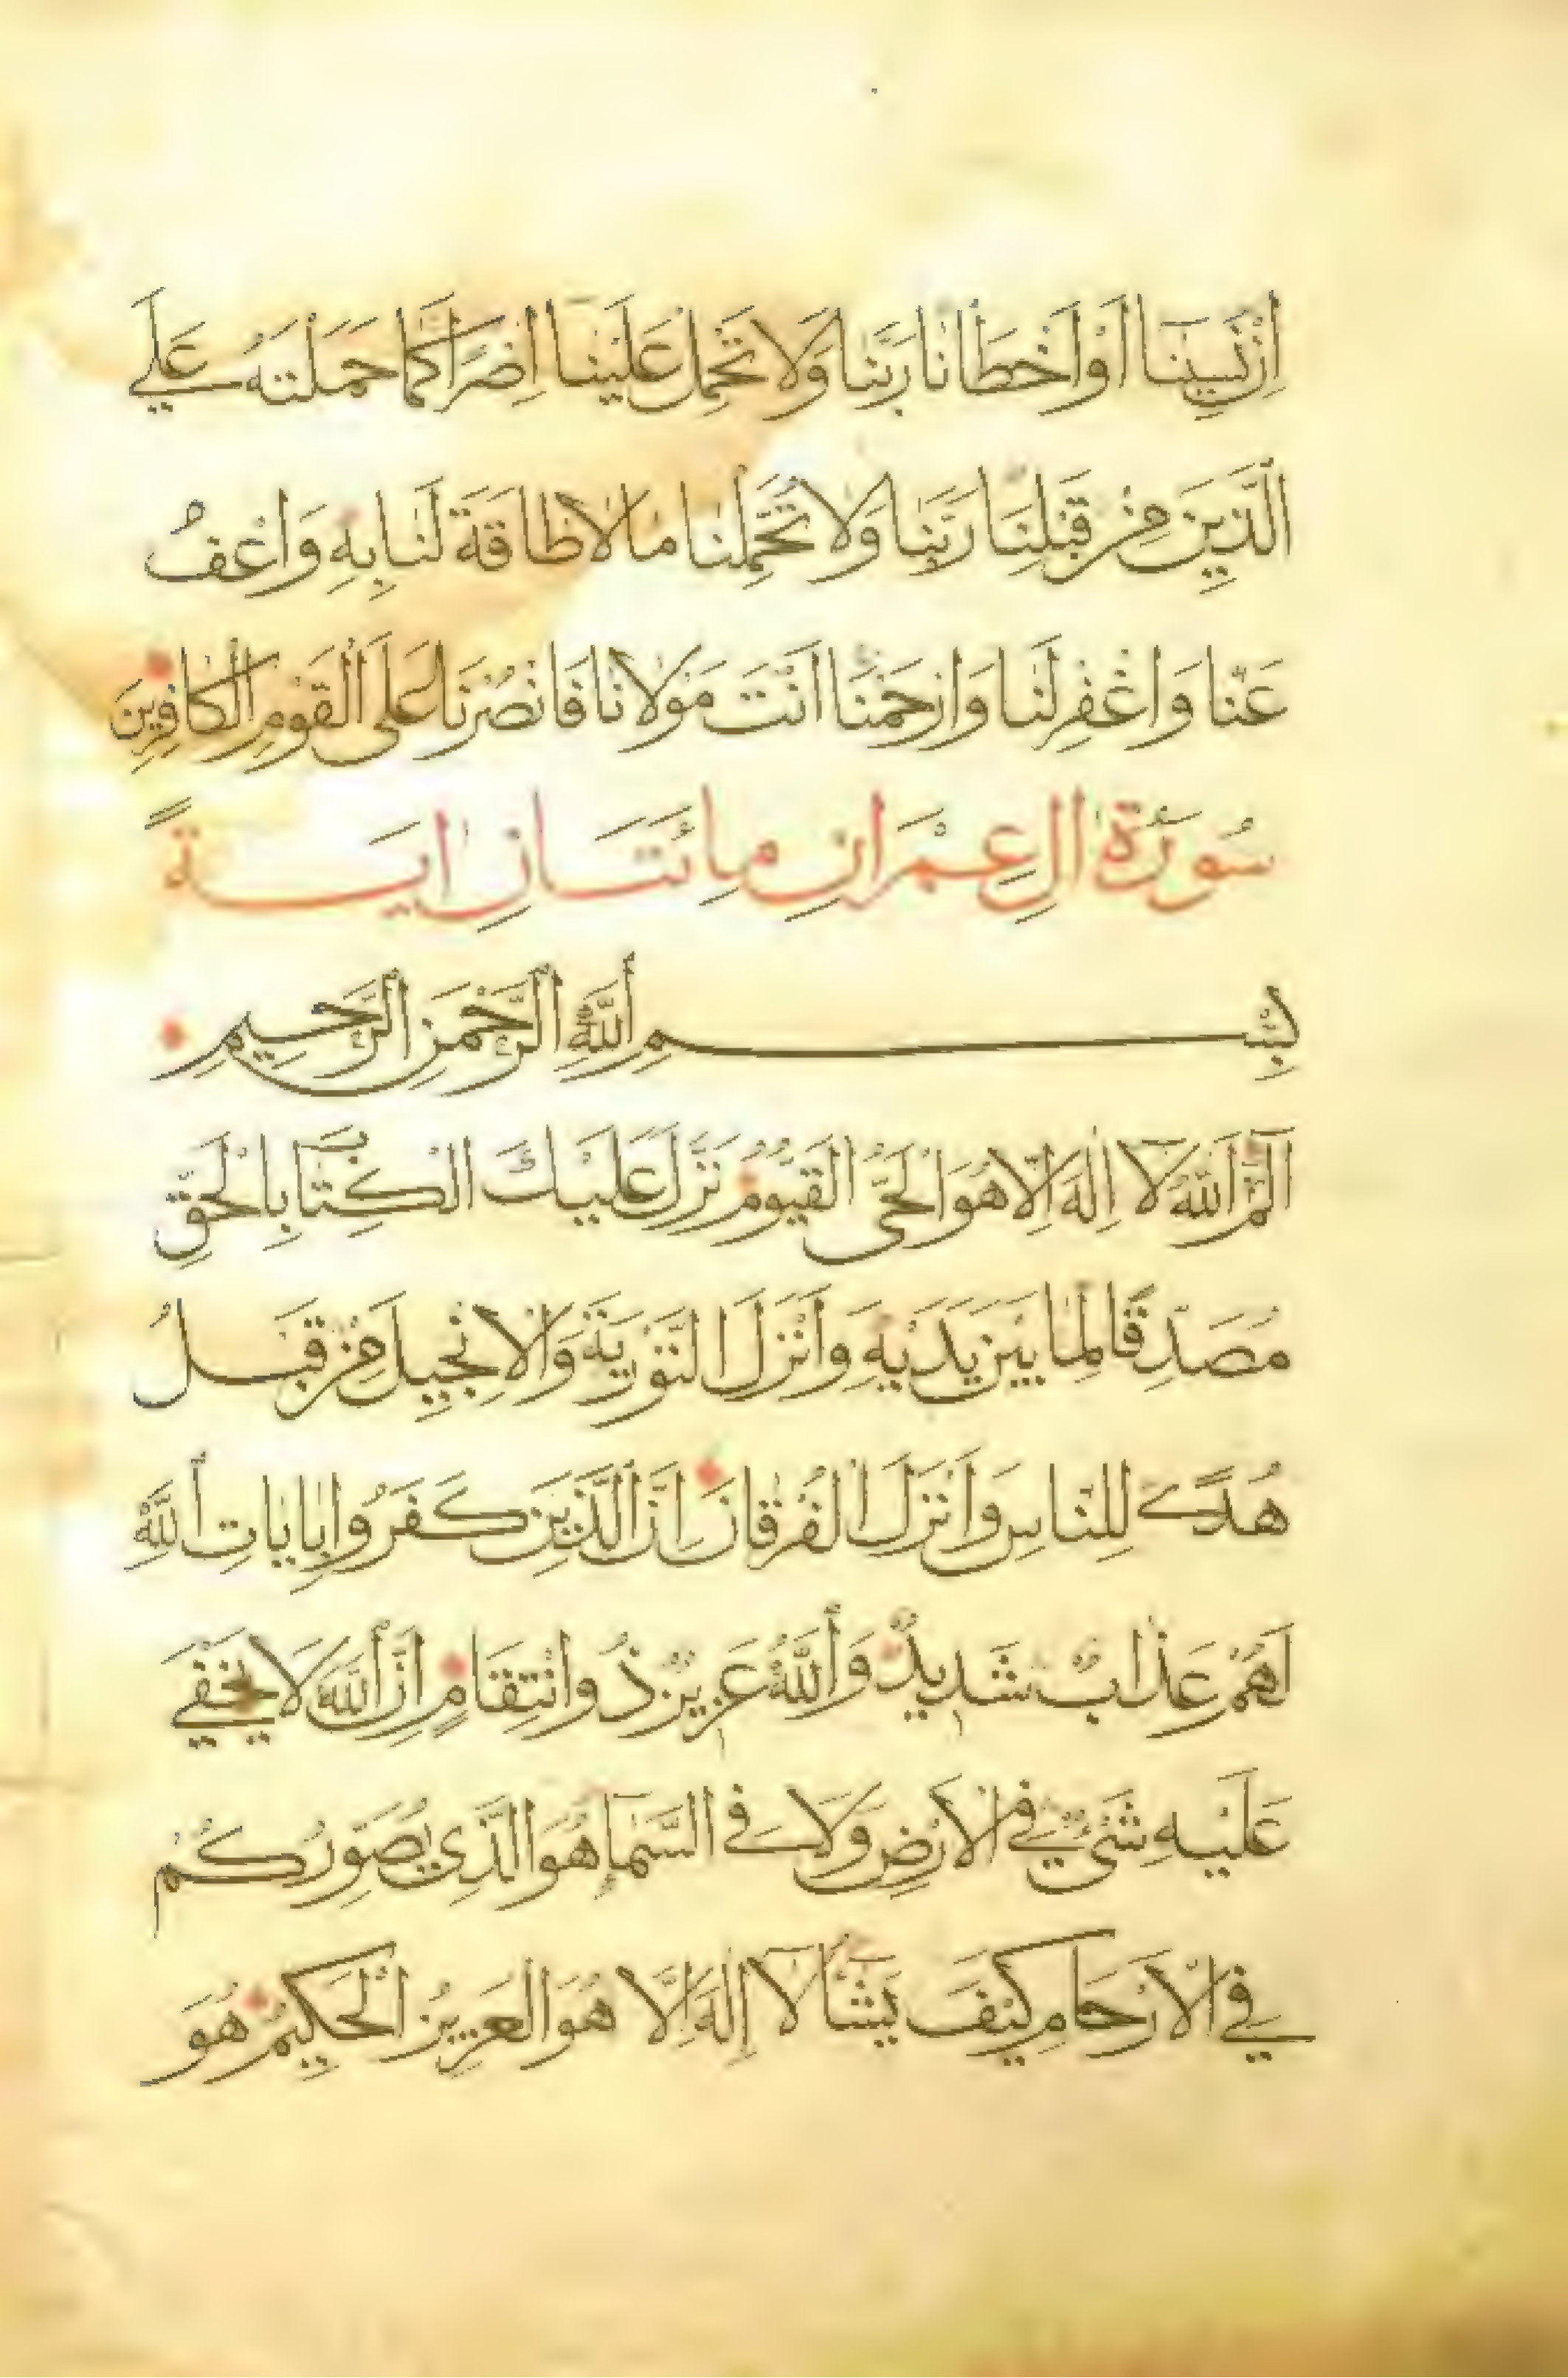 اِنْ نَسِينَا اَوْ اَخْطَانَا رَبَّنَا وَلَا تَحْمِلْ عَلَيْنَا اِصْرًا كَمَا حَمَلْتَهُ عَلَى
الَّذِينَ مِنْ قَبْلِنَا رَبَّنَا وَلَا تُحَمِّلْنَا مَا لَا طَاقَةَ لَنَا بِهِ وَاعْفُ
عَنَّا وَاغْفِرْ لَنَا وَارْحَمْنَا اَنْتَ مَوْلَانَا فَانْصُرْنَا عَلَى الْقَوْمِ الْكَافِرِينَ
سُورَةُ اٰلِ عِمْرَانِ مِائَتَانِ اٰيَةً
بِسْمِ اللّٰهِ الرَّحْمٰنِ الرَّحِيمِ
الٓمٓ اَللّٰهُ لَا اِلٰهَ اِلَّا هُوَ الْحَيُّ الْقَيُّومُ نَزَّلَ عَلَيْكَ الْكِتَابَ بِالْحَقِّ
مُصَدِّقًا لِمَا بَيْنَ يَدَيْهِ وَاَنْزَلَ التَّوْرٰيةَ وَالْاِنْجِيلَ مِنْ قَبْلُ
هُدًى لِلنَّاسِ وَاَنْزَلَ الْفُرْقَانَ اِنَّ الَّذِينَ كَفَرُوا بِاٰيَاتِ اللّٰهِ
لَهُمْ عَذَابٌ شَدِيدٌ وَاللّٰهُ عَزِيزٌ ذُو انْتِقَامٍ اِنَّ اللّٰهَ لَا يَخْفٰى
عَلَيْهِ شَىْءٌ فِى الْاَرْضِ وَلَا فِى السَّمَاءِ هُوَ الَّذِى يُصَوِّرُكُمْ
فِى الْاَرْحَامِ كَيْفَ يَشَاءُ لَا اِلٰهَ اِلَّا هُوَ الْعَزِيزُ الْحَكِيمُ هُوَ